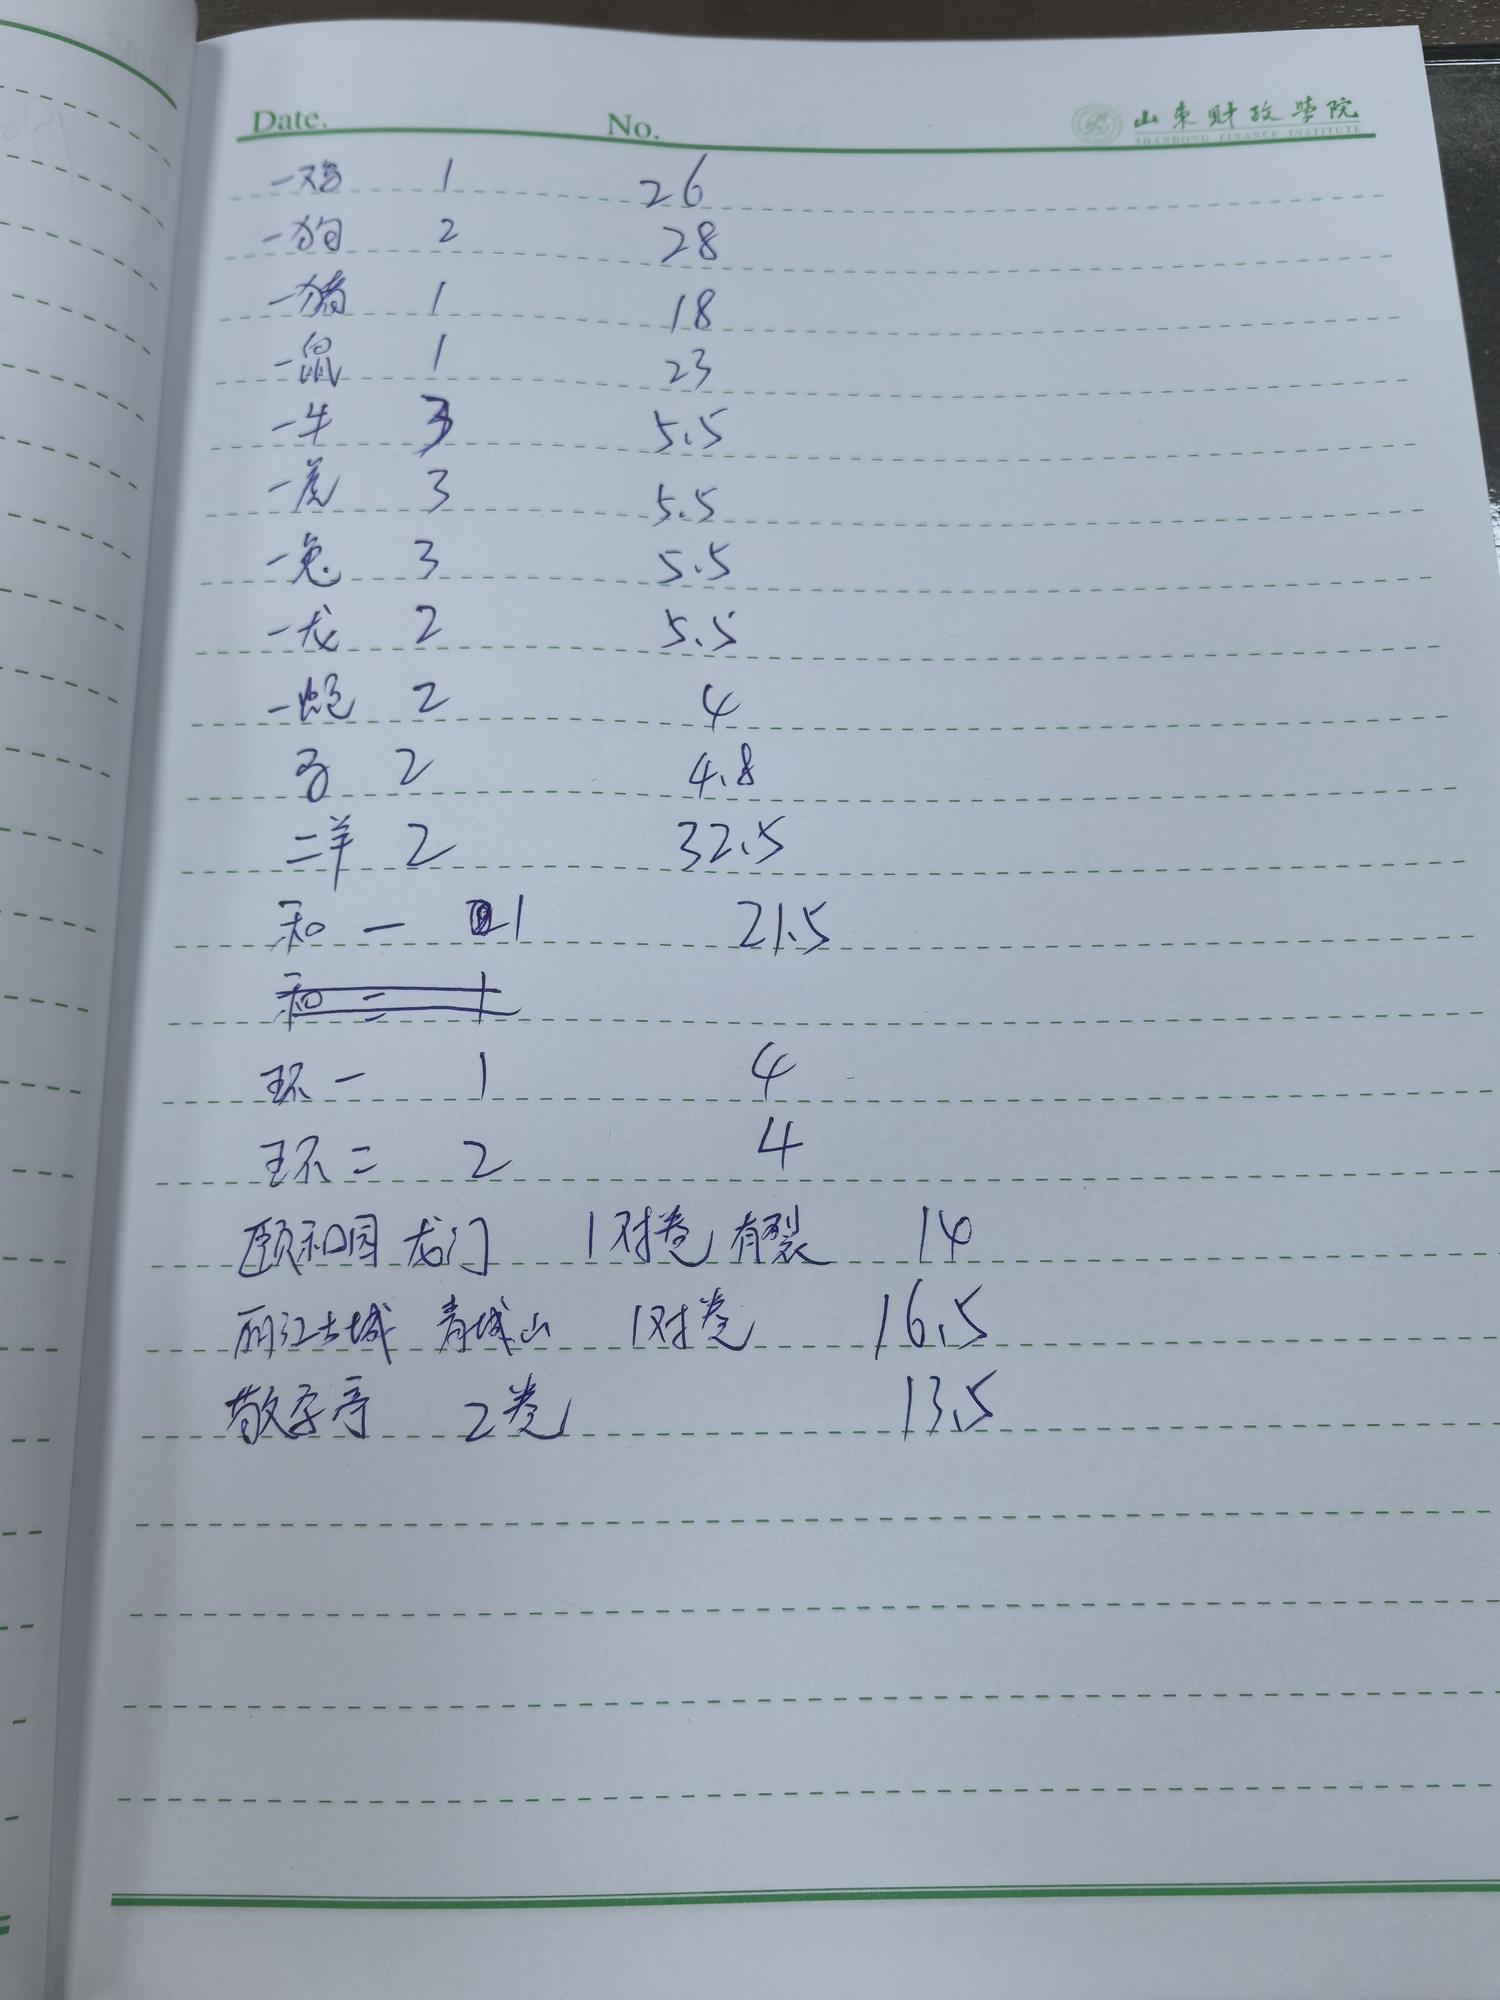 Date. No. 山东财政学院
SHANDONG FINANCE INSTITUTE
一鸡 1 26
一狗 2 28
一猪 1 18
一鼠 1 23
一牛 3 5.5
一虎 3 5.5
一兔 3 5.5
一龙 2 5.5
一蛇 2 4
2 4.8
二羊 2 32.5
和一 1 21.5
和二 1
环一 1 4
环二 2 4
颐和园 龙门 1对卷 有裂 14
丽江古城 青城山 1对卷 16.5
敬字亭 2卷 13.5